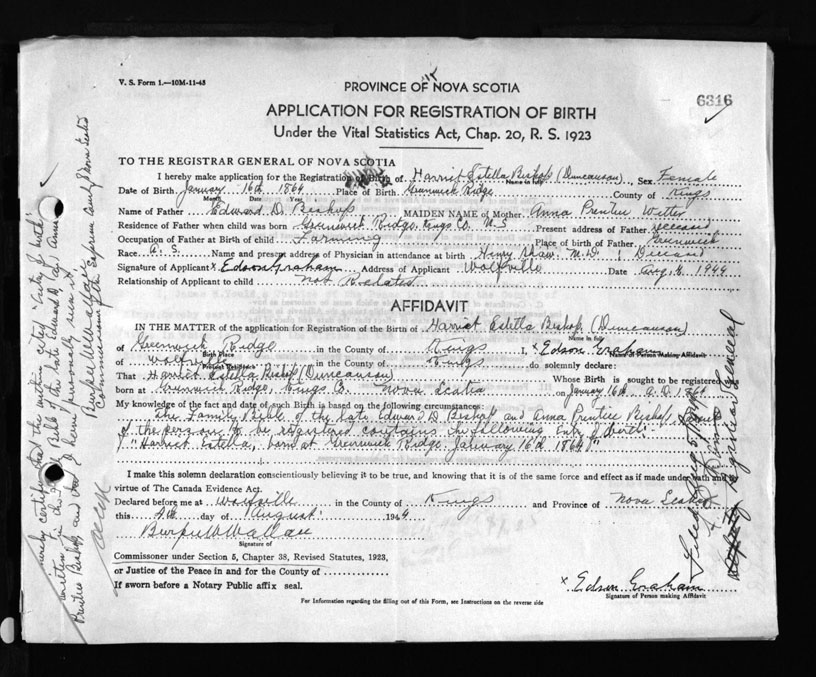 V. S. Form 1.—10M-11-43
PROVINCE OF NOVA SCOTIA
6316
APPLICATION FOR REGISTRATION OF BIRTH
Under the Vital Statistics Act, Chap. 20, R. S. 1923
TO THE REGISTRAR GENERAL OF NOVA SCOTIA
I hereby make application for the Registration of Birth of Harriet Estella Bishop (Duncanson), Sex Female
Name in full
Date of Birth January 16th 1864 Place of Birth Greenwich Ridge County of Kings
Month Date Year
Name of Father Edward D. Bishop MAIDEN NAME of Mother Anna Prentice Witter
Residence of Father when child was born Greenwich Ridge, Kings Co. N.S. Present address of Father deceased
Occupation of Father at Birth of child Farming Place of birth of Father Greenwich
Race S. Name and present address of Physician in attendance at birth Henry Shaw. M.D.
Signature of Applicant x Edson Graham Address of Applicant Wolfville Date Aug. 4, 1944
Relationship of Applicant to child not Related
AFFIDAVIT
IN THE MATTER of the application for Registration of the Birth of Harriet Estella Bishop (Duncanson)
Name in full
of Greenwich Ridge in the County of Kings I, x Edson Graham
Birth Place Name of Person Making Affidavit
of Wolfville in the County of Kings do solemnly declare:
Present Residence
That Harriet Estella Bishop (Duncanson) Whose Birth is sought to be registered
born at Greenwich Ridge, Kings Co. Nova Scotia on January 16th A.D. 1864
My knowledge of the fact and date of such Birth is based on the following circumstances:
The Family Bible of the late Edward D Bishop and Anna Prentice Bishop, parents
of the person to be registered contains the following entry of birth:
"Harriet Estella, born at Greenwich Ridge January 16th 1864"
I make this solemn declaration conscientiously believing it to be true, and knowing that it is of the same force and effect as if made under oath and by
virtue of The Canada Evidence Act.
Declared before me at Wolfville in the County of Kings and Province of Nova Scotia
this 4th day of August 1944
Burpee W Wallace
Signature of
Commissioner under Section 5, Chapter 38, Revised Statutes, 1923,
or Justice of the Peace in and for the County of
If sworn before a Notary Public affix seal.
x Edson Graham
Signature of Person making Affidavit
For Information regarding the filling out of this Form, see Instructions on the reverse side
I hereby certify that the within cited "entry of birth" is
written in the Family Bible of the late Edward D. and Anna
Prentice Bishop and that I have personally seen it
Burpee W Wallace
Commissioner of the Supreme Court of Nova Scotia
Deputy Registrar General